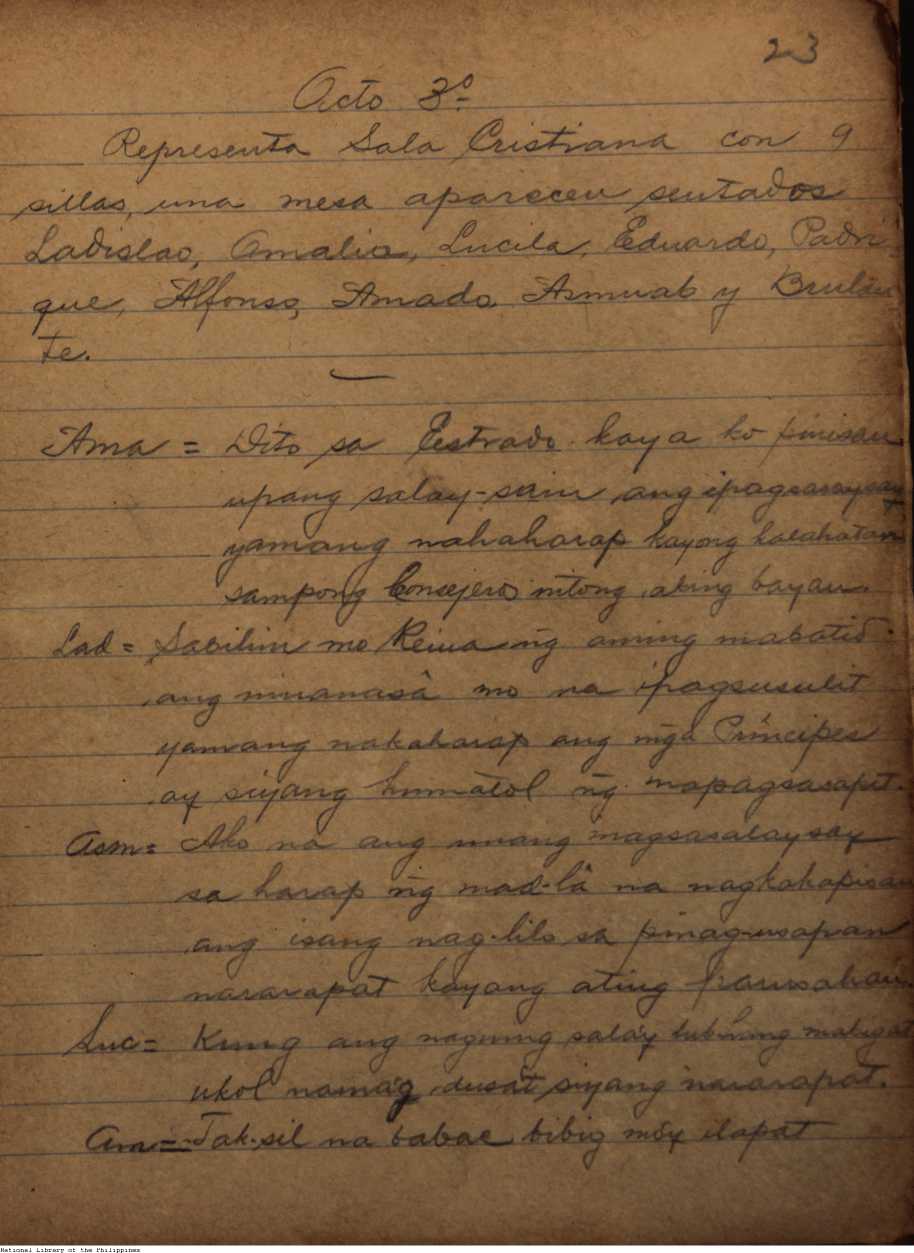 23
Acto 3º
Representa Sala Cristiana con 9
sillas, una mesa aparecen sentados
Ladislao, Amalia, Lucila, Eduardo, Padri
que, Alfonso, Amado, Asmuab y Brulan
te.
Ama = Dito sa Estrado kaya ko pinisan
upang salay-sain ang ipagsasaysay
yamang nahaharap kayong kalahatan
sampong Consejeros nitong aking bayan.
Lad = Sabihin mo Reina ng̃ aming mabatid
ang minanasâ mo na ipagsusulit
yamang nakaharap ang mg̃a Principes
ay siyang humatol ng̃ mapagsasapit.
Asm = Ako na ang unang magsasalaysay
sa harap ng̃ mad-lâ na nagkakapisan
ang isang nag-lilo sa pinag-usapan
nararapat kayang ating parusahan.
Luc = Kung ang naguing sala'y lubhang mabigat
ukol nama'g dusa't siyang nararapat.
Am = Tak-sil na babae bibig mo'y ilapat
National Library of the Philippines